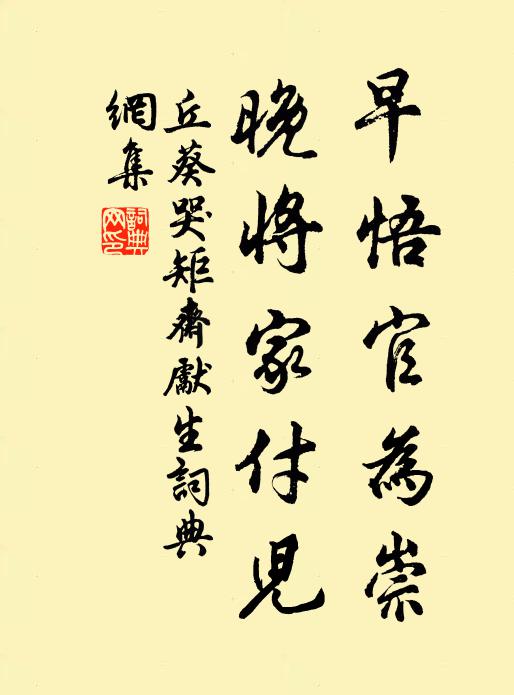 早悟官為祟
晚將家付兒
丘葵哭矩齋獻生詞典
網集
詞典
网印